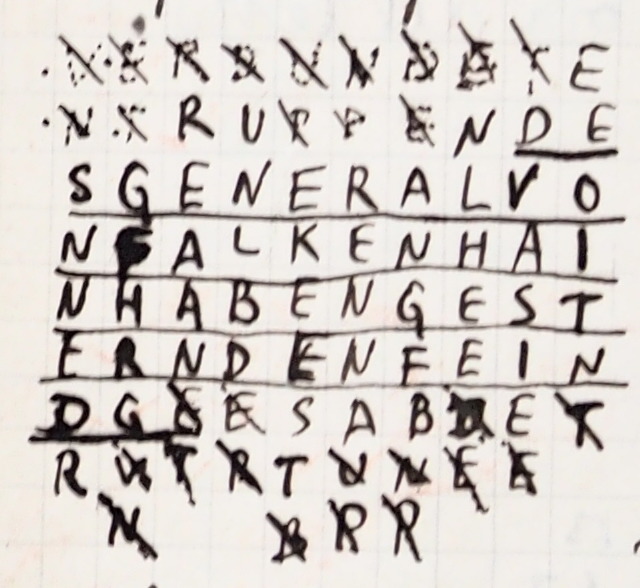 E
R U P P E N D E
S G E N E R A L V O
N F A L K E N H A I
N H A B E N G E S T
E R N D E N F E I N
D G E E S A B E T
R U T R T U N E E
N B R R